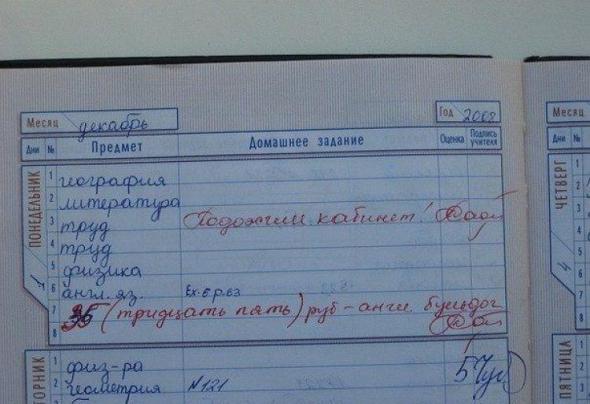 Месяц декабрь Год 2008
Дни № Предмет Домашнее задание Оценка Подпись учителя Месяц
Дни №
ПОНЕДЕЛЬНИК
1
1 география
2 литература
3 труд Подожгли кабинет!
4 труд
5 физика
6 англ. яз. Ex. 6 p. 63
7 35 (тридцать пять) руб - англ. бульдог
8
ЧЕТВЕРГ
4
ТОРНИК
1 физ-ра
2 геометрия №121 5
ПЯТНИЦА
1
2
3